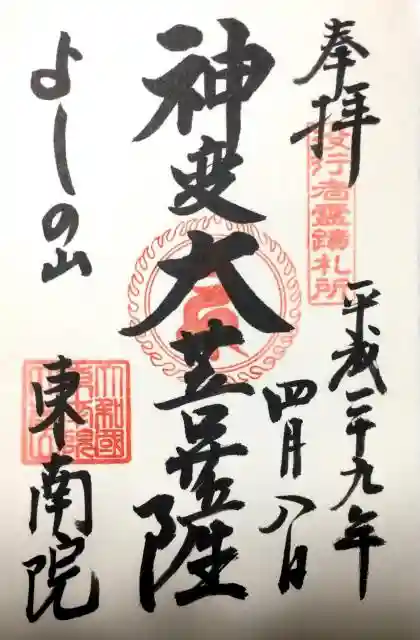 奉拝
役行者霊蹟札所
平成二十九年
四月八日
神変大菩薩
よしの山
東南院